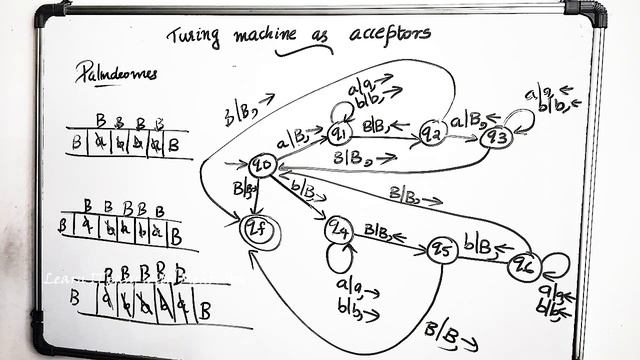 Turing machine as acceptors
Palindromes
B B B B
B a b b a B
B|B,→
a|B,→
q0
a|a,→
b|b,→
q1
B|B,←
q2
a|B,←
q3
a|a,←
b|b,←
B|B,→
B|B,→
b|B,→
qf
B B B B B
B a b a b a B
B|B,→
q4
B|B,←
q5
b|B,←
q6
a|a,→
b|b,→
a|a,←
b|b,←
B|B,→
B B B B B
B B